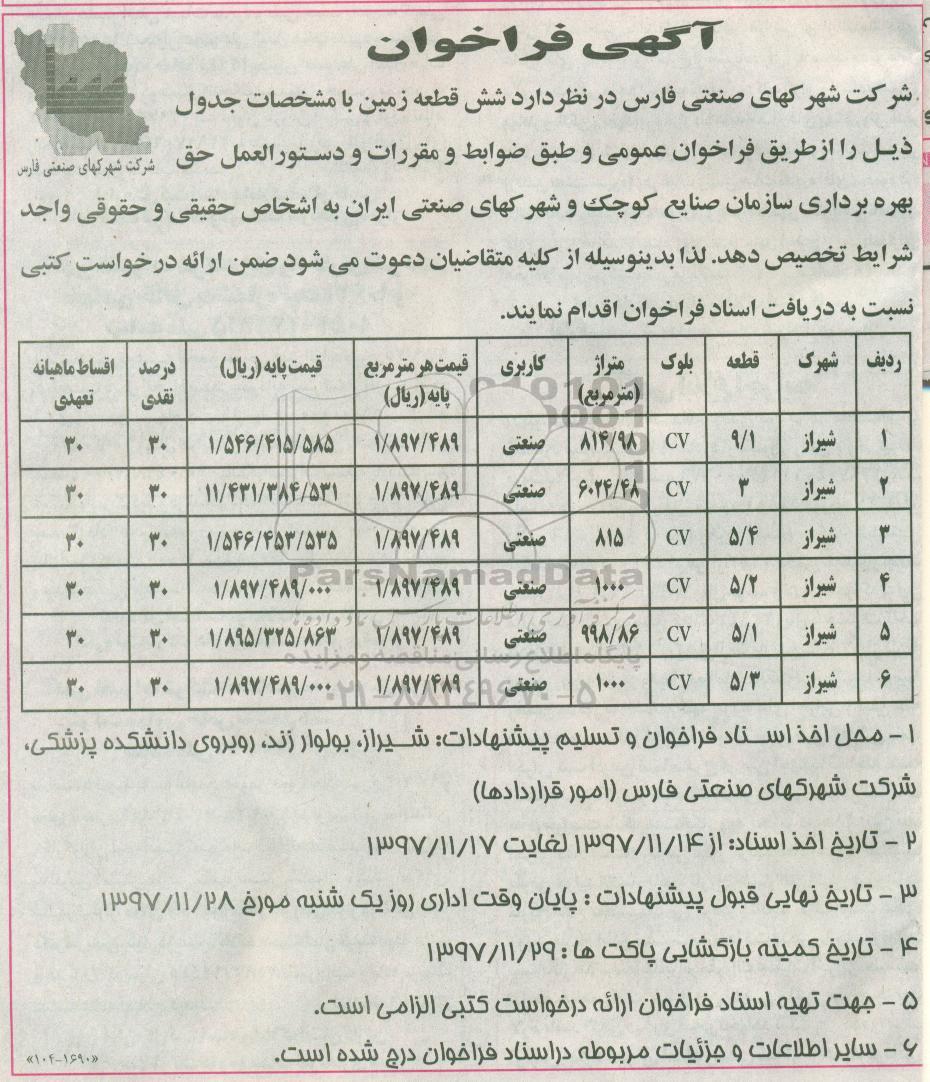 آگهی فراخوان
شرکت شهرکهای صنعتی فارس
شرکت شهرکهای صنعتی فارس در نظر دارد شش قطعه زمین با مشخصات جدول
ذیل را از طریق فراخوان عمومی و طبق ضوابط و مقررات و دستورالعمل حق
بهره برداری سازمان صنایع کوچک و شهرکهای صنعتی ایران به اشخاص حقیقی و حقوقی واجد
شرایط تخصیص دهد. لذا بدینوسیله از کلیه متقاضیان دعوت می شود ضمن ارائه درخواست کتبی
نسبت به دریافت اسناد فراخوان اقدام نمایند.
ردیف شهرک قطعه بلوک متراژ (مترمربع) کاربری قیمت هر مترمربع پایه (ریال) قیمت پایه (ریال) درصد نقدی اقساط ماهیانه تعهدی
۱ شیراز ۹/۱ CV ۸۱۴/۹۸ صنعتی ۱/۸۹۷/۴۸۹ ۱/۵۴۶/۴۱۵/۵۸۵ ۳۰ ۳۰
۲ شیراز ۳ CV ۶۰۲۴/۴۸ صنعتی ۱/۸۹۷/۴۸۹ ۱۱/۴۳۱/۳۸۴/۵۳۱ ۳۰ ۳۰
۳ شیراز ۵/۴ CV ۸۱۵ صنعتی ۱/۸۹۷/۴۸۹ ۱/۵۴۶/۴۵۳/۵۳۵ ۳۰ ۳۰
۴ شیراز ۵/۲ CV ۱۰۰۰ صنعتی ۱/۸۹۷/۴۸۹ ۱/۸۹۷/۴۸۹/۰۰۰ ۳۰ ۳۰
۵ شیراز ۵/۱ CV ۹۹۸/۸۶ صنعتی ۱/۸۹۷/۴۸۹ ۱/۸۹۵/۳۲۵/۸۶۳ ۳۰ ۳۰
۶ شیراز ۵/۳ CV ۱۰۰۰ صنعتی ۱/۸۹۷/۴۸۹ ۱/۸۹۷/۴۸۹/۰۰۰ ۳۰ ۳۰
ParsNamadData
مرکز فرآوری اطلاعات پارس نماد داده ها
پایگاه اطلاع رسانی مناقصه و مزایده
۰۲۱-۸۸۳۴۹۶۷۰-۵
۱- محل اخذ اسناد فراخوان و تسلیم پیشنهادات: شیراز، بولوار زند، روبروی دانشکده پزشکی،
شرکت شهرکهای صنعتی فارس (امور قراردادها)
۲ - تاریخ اخذ اسناد: از ۱۳۹۷/۱۱/۱۴ لغایت ۱۳۹۷/۱۱/۱۷
۳ - تاریخ نهایی قبول پیشنهادات : پایان وقت اداری روز یک شنبه مورخ ۱۳۹۷/۱۱/۲۸
۴ - تاریخ کمیته بازگشایی پاکت ها : ۱۳۹۷/۱۱/۲۹
۵ - جهت تهیه اسناد فراخوان ارائه درخواست کتبی الزامی است.
۶ - سایر اطلاعات و جزئیات مربوطه دراسناد فراخوان درج شده است.
«۱۰۴-۱۶۹۰»